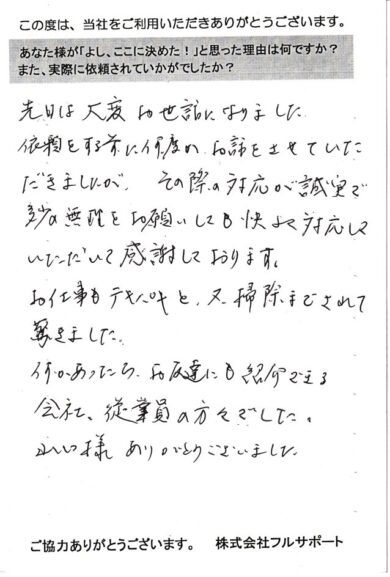 この度は、当社をご利用いただきありがとうございます。
あなた様が「よし、ここに決めた！」と思った理由は何ですか？
また、実際に依頼されていかがでしたか？
先日は、大変お世話になりました
依頼をする前に何度かお話をさせていた
だきましたが、その際の対応が誠実で
多少の無理をお願いしても快よく対応して
いただいて感謝しております。
お仕事もテキパキと、又、掃除までされて
驚きました。
何かあったら、お友達にも紹介できる
会社、従業員の方々でした。
様 ありがとうございました
ご協力ありがとうございます。 株式会社フルサポート